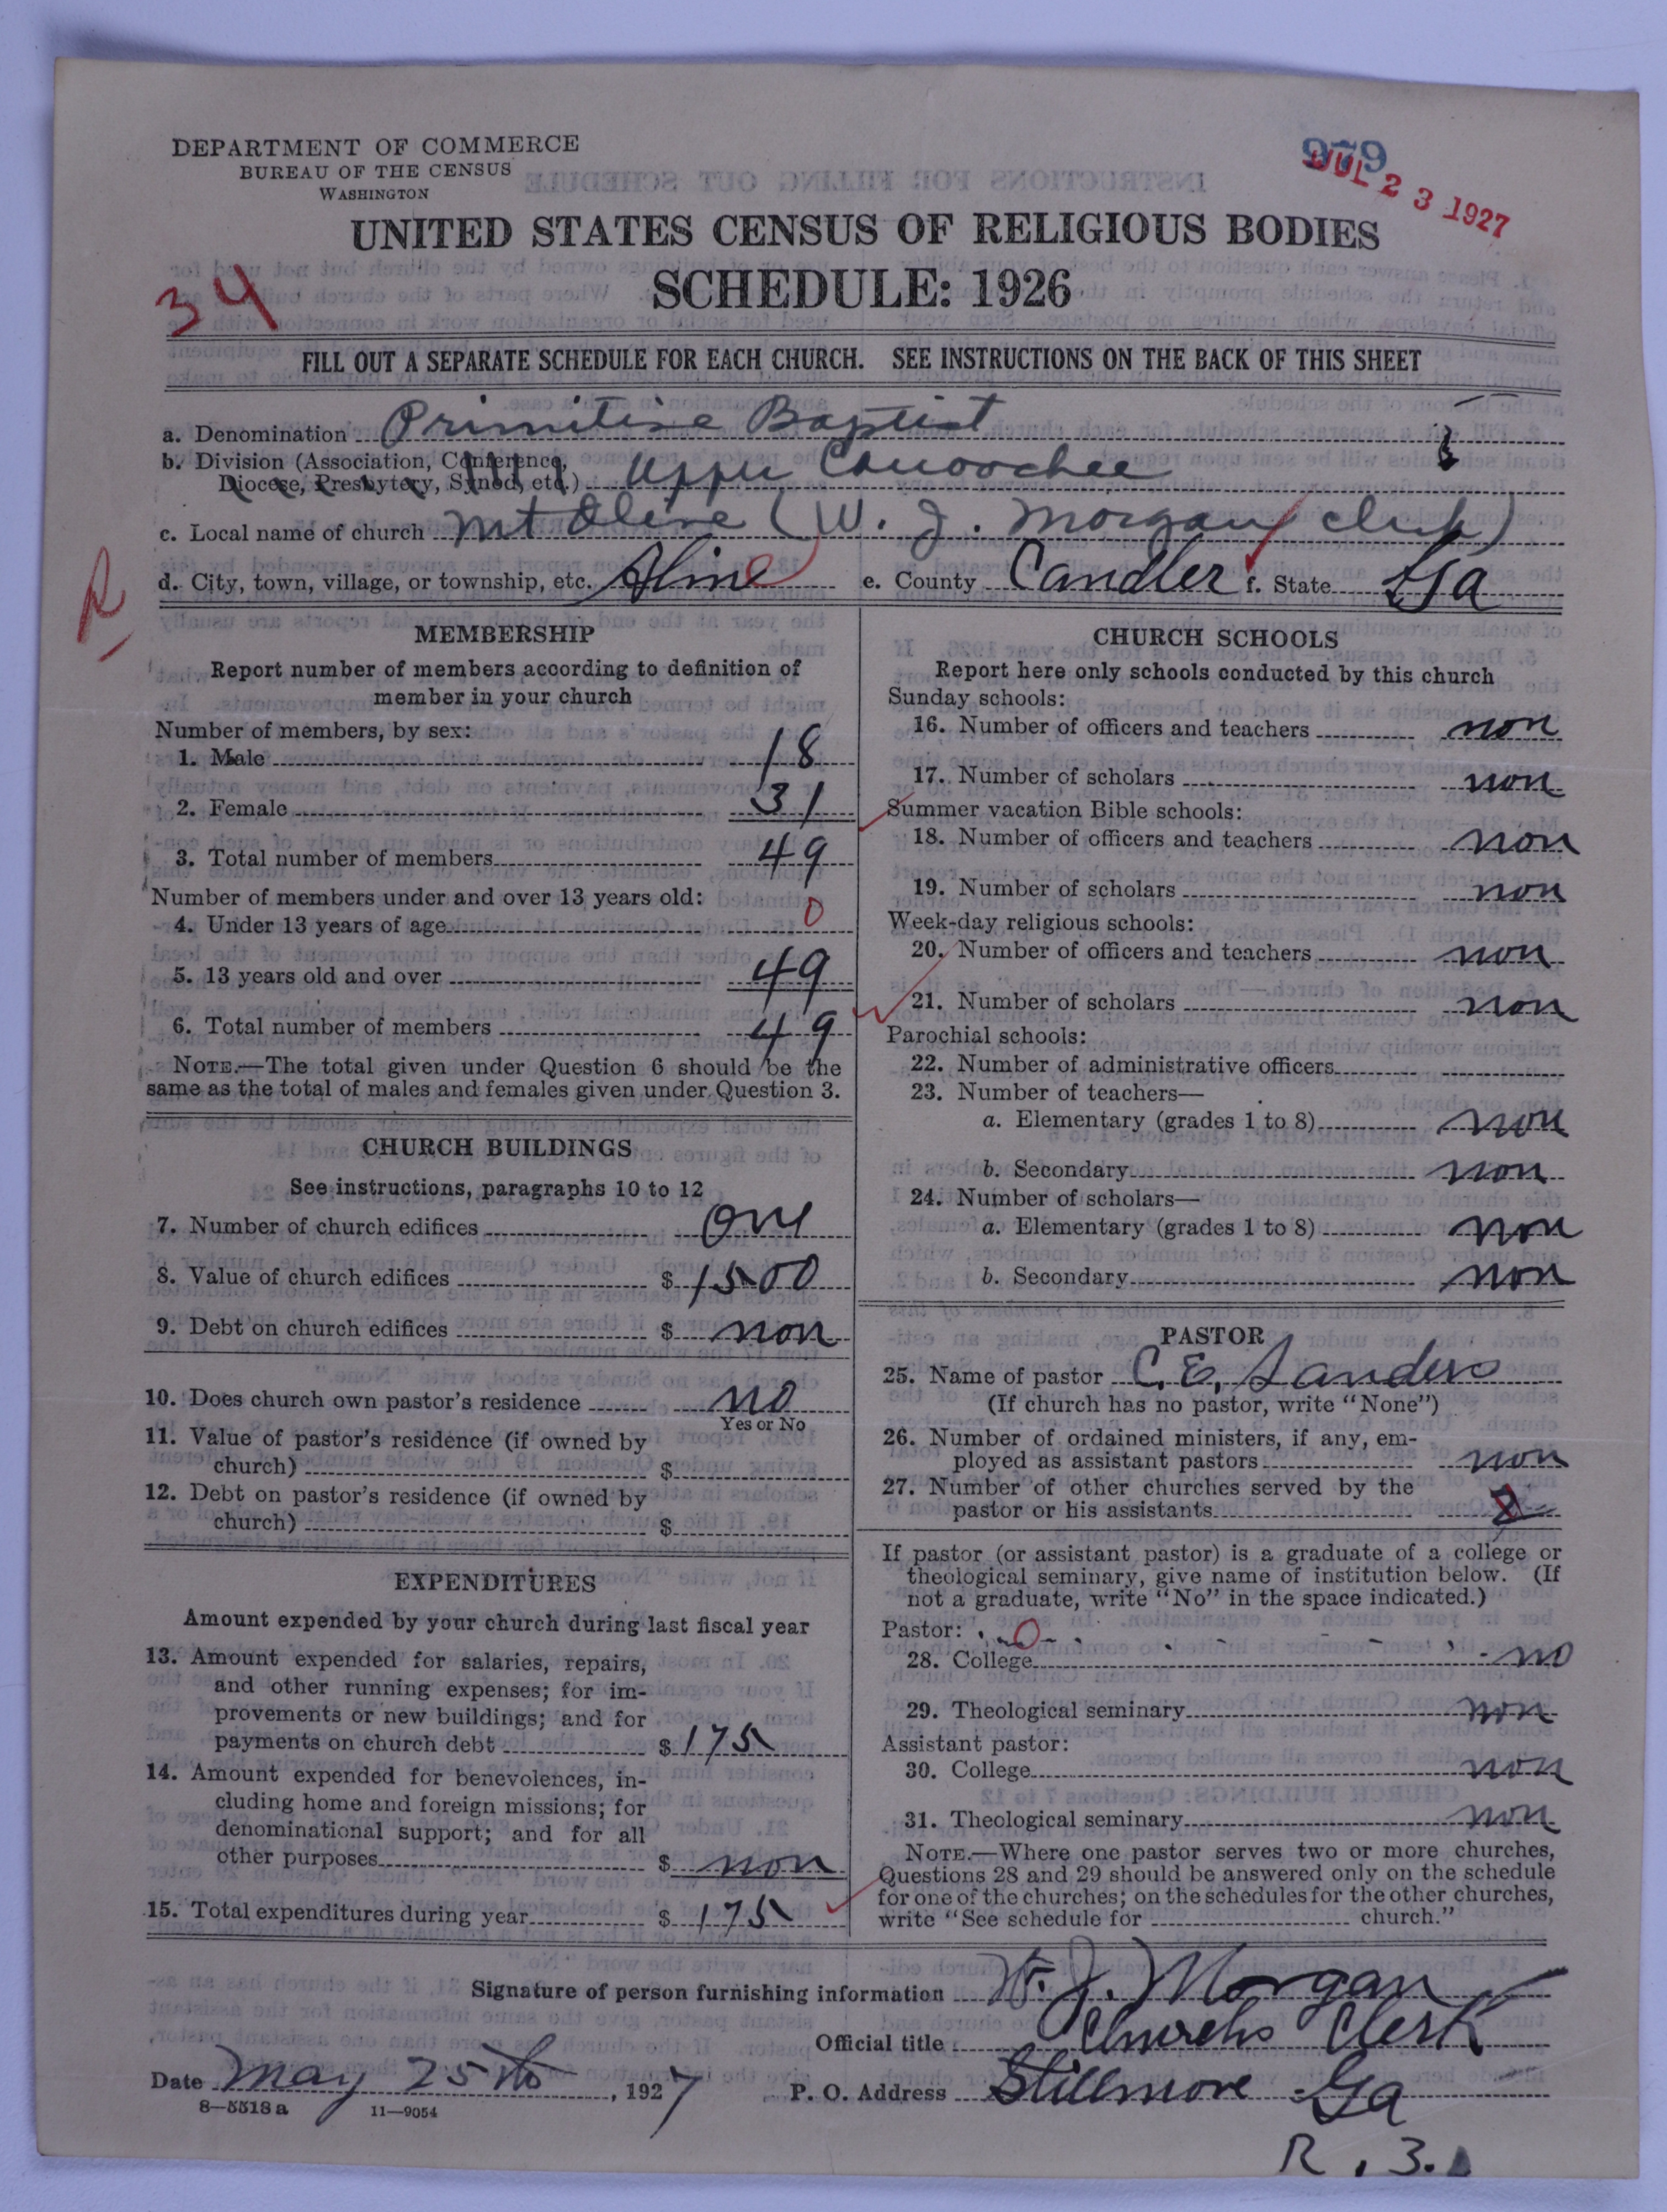 DEPARTMENT OF COMMERCE
BUREAU OF THE CENSUS
WASHINGTON
979
JUL 23 1927
UNITED STATES CENSUS OF RELIGIOUS BODIES
SCHEDULE: 1926
34
FILL OUT A SEPARATE SCHEDULE FOR EACH CHURCH. SEE INSTRUCTIONS ON THE BACK OF THIS SHEET
a. Denomination Primitive Baptist
b. Division (Association, Conference,
Diocese, Presbytery, Synod, etc.) Upper Canoochee
c. Local name of church Mt Olive (W. J. Morgan clerk)
d. City, town, village, or township, etc. Aline e. County Candler f. State Ga
R
MEMBERSHIP
Report number of members according to definition of
member in your church
Number of members, by sex:
1. Male 18
2. Female 31
3. Total number of members 49
Number of members under and over 13 years old:
4. Under 13 years of age 0
5. 13 years old and over 49
6. Total number of members 49
NOTE.—The total given under Question 6 should be the
same as the total of males and females given under Question 3.
CHURCH BUILDINGS
See instructions, paragraphs 10 to 12
7. Number of church edifices One
8. Value of church edifices $ 1500
9. Debt on church edifices $ non
10. Does church own pastor's residence no
Yes or No
11. Value of pastor's residence (if owned by
church) $
12. Debt on pastor's residence (if owned by
church) $
EXPENDITURES
Amount expended by your church during last fiscal year
13. Amount expended for salaries, repairs,
and other running expenses; for im-
provements or new buildings; and for
payments on church debt $ 175
14. Amount expended for benevolences, in-
cluding home and foreign missions; for
denominational support; and for all
other purposes $ non
15. Total expenditures during year $ 175
CHURCH SCHOOLS
Report here only schools conducted by this church
Sunday schools:
16. Number of officers and teachers non
17. Number of scholars non
Summer vacation Bible schools:
18. Number of officers and teachers non
19. Number of scholars non
Week-day religious schools:
20. Number of officers and teachers non
21. Number of scholars non
Parochial schools:
22. Number of administrative officers
23. Number of teachers—
a. Elementary (grades 1 to 8) non
b. Secondary non
24. Number of scholars—
a. Elementary (grades 1 to 8) non
b. Secondary non
PASTOR
25. Name of pastor C. E. Sanders
(If church has no pastor, write "None")
26. Number of ordained ministers, if any, em-
ployed as assistant pastors non
27. Number of other churches served by the
pastor or his assistants
If pastor (or assistant pastor) is a graduate of a college or
theological seminary, give name of institution below. (If
not a graduate, write "No" in the space indicated.)
Pastor: 0
28. College no
29. Theological seminary non
Assistant pastor:
30. College non
31. Theological seminary non
NOTE.—Where one pastor serves two or more churches,
Questions 28 and 29 should be answered only on the schedule
for one of the churches; on the schedules for the other churches,
write "See schedule for church."
Signature of person furnishing information W. J. Morgan
Official title Church Clerk
Date May 25th, 1927 P. O. Address Stillmore Ga
8—5518a 11—9054
R. 3.